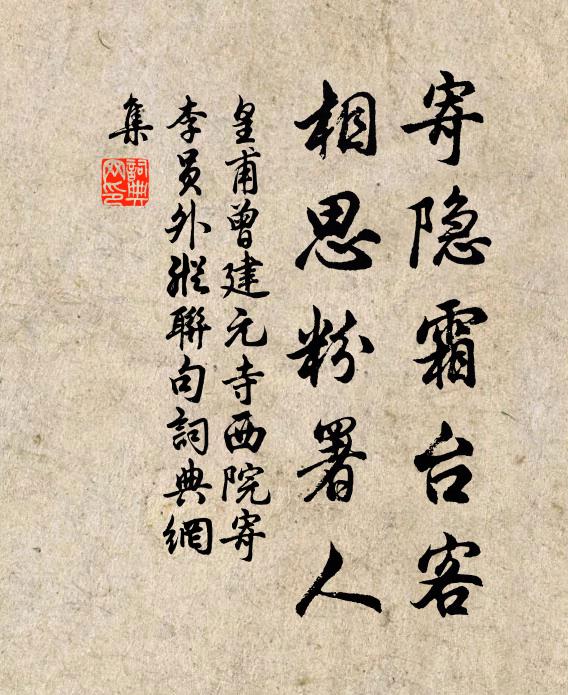 寄隐霜台客
相思粉署人
皇甫曾建元寺西院寄
李员外纵聯句詞典網
集
詞典
网印